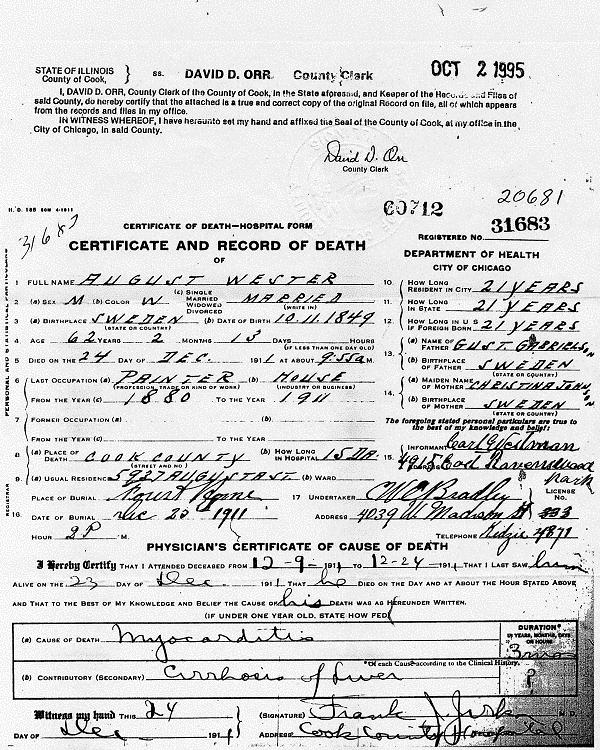 STATE OF ILLINOIS, County of Cook, } ss. DAVID D. ORR County Clerk OCT 2 1995
I, DAVID D. ORR, County Clerk of the County of Cook, in the State aforesaid, and Keeper of the Records and Files of
said County, do hereby certify that the attached is a true and correct copy of the original Record on file, all of which appears
from the records and files in my office.
IN WITNESS WHEREOF, I have hereunto set my hand and affixed the Seal of the County of Cook, at my office in the
City of Chicago, in said County.
David D. Orr
County Clerk
20681
H. D. 185 50M 4-1911
60712
31683
CERTIFICATE OF DEATH—HOSPITAL FORM
REGISTERED NO. 31683
CERTIFICATE AND RECORD OF DEATH
OF
DEPARTMENT OF HEALTH
CITY OF CHICAGO
PERSONAL AND STATISTICAL PARTICULARS
REGISTRAR
1 FULL NAME AUGUST WESTER
2 (a) SEX M (b) COLOR W (c) SINGLE MARRIED WIDOWED DIVORCED MARRIED (WRITE IN)
3 (a) BIRTHPLACE SWEDEN (STATE OR COUNTRY) (b) DATE OF BIRTH 10.11.1849
4 AGE 62 YEARS 2 MONTHS 13 DAYS HOURS (IF LESS THAN ONE DAY OLD)
5 DIED ON THE 24 DAY OF DEC. 1911 AT ABOUT 9:55 a M.
6 LAST OCCUPATION (a) PAINTER (PROFESSION, TRADE OR KIND OF WORK) (b) HOUSE (INDUSTRY OR BUSINESS)
FROM THE YEAR (c) 1880 TO THE YEAR 1911
7 FORMER OCCUPATION (a) (b)
FROM THE YEAR (c) TO THE YEAR
8 (a) PLACE OF DEATH COOK COUNTY (STREET AND NO) (b) HOW LONG IN HOSPITAL 15 DA.
9 (a) USUAL RESIDENCE 5927 AUGUSTA ST (b) WARD
10. How Long Resident in City 21 YEARS
11. How Long in State 21 YEARS
12. How Long in U S if Foreign Born 21 YEARS
13. (a) Name of Father GUST GABRIELSON
(b) Birthplace of Father SWEDEN (STATE OR COUNTRY)
14. (a) Maiden Name of Mother CHRISTINA JOHNSON
(b) Birthplace of Mother SWEDEN (STATE OR COUNTRY)
The foregoing stated personal particulars are true to
the best of my knowledge and belief:
15. INFORMANT Carl Westman
ADDRESS Ravenswood Park
16. PLACE OF BURIAL Mount Home
17 UNDERTAKER W C Bradley LICENSE No. 333
DATE OF BURIAL Dec 1911 ADDRESS 4039 W Madison St
HOUR 2 P M. TELEPHONE Kedzie 4871
PHYSICIAN'S CERTIFICATE OF CAUSE OF DEATH
I Hereby Certify THAT I ATTENDED DECEASED FROM 12-9-1911 TO 12-24-1911 THAT I LAST SAW him
ALIVE ON THE 23 DAY OF Dec 1911 THAT he DIED ON THE DAY AND AT ABOUT THE HOUR STATED ABOVE
AND THAT TO THE BEST OF MY KNOWLEDGE AND BELIEF THE CAUSE OF his DEATH WAS AS HEREUNDER WRITTEN.
(IF UNDER ONE YEAR OLD, STATE HOW FED)
DURATION* IN YEARS, MONTHS, DAYS OR HOURS
(a) CAUSE OF DEATH Myocarditis 3 mos
*Of each Cause according to the Clinical History.
(b) CONTRIBUTORY (SECONDARY) Cirrhosis of Liver ?
Witness my hand THIS 24 (SIGNATURE) Frank J Jirka M.D.
DAY OF Dec 1911 ADDRESS Cook County Hospital